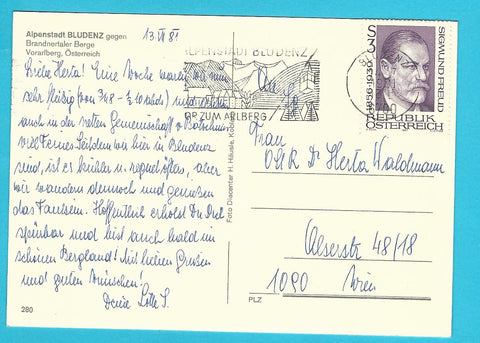 Alpenstadt BLUDENZ gegen
Brandnertaler Berge
Vorarlberg, Österreich
13.VII 81
Liebe Herta! Eine Woche waren wir nun
sehr fleißig (von 3/4 8 - 1/2 10 abds) und
auch in der netten Gemeinschaft v
viel Ferne. Seitdem wir hier in Bludenz
sind, ist es kühler u. regnerisches, aber
wir wandern dennoch und genießen
das Faulsein. Hoffentlich erholst Du Dich
spürbar und bist auch bald im
schönen Bergland! Mit lieben Grüßen
und guten Wünschen!
Deine Lotte S.
280
ALPENSTADT BLUDENZ
TOR ZUM ARLBERG
Foto Diacenter H. Häusle, Koblach
S 3
1856-1939
SIGMUND FREUD
REPUBLIK
ÖSTERREICH
An
Frau
OStR Dr Herta Waldmann
Alserstr 48/18
1090 Wien
PLZ